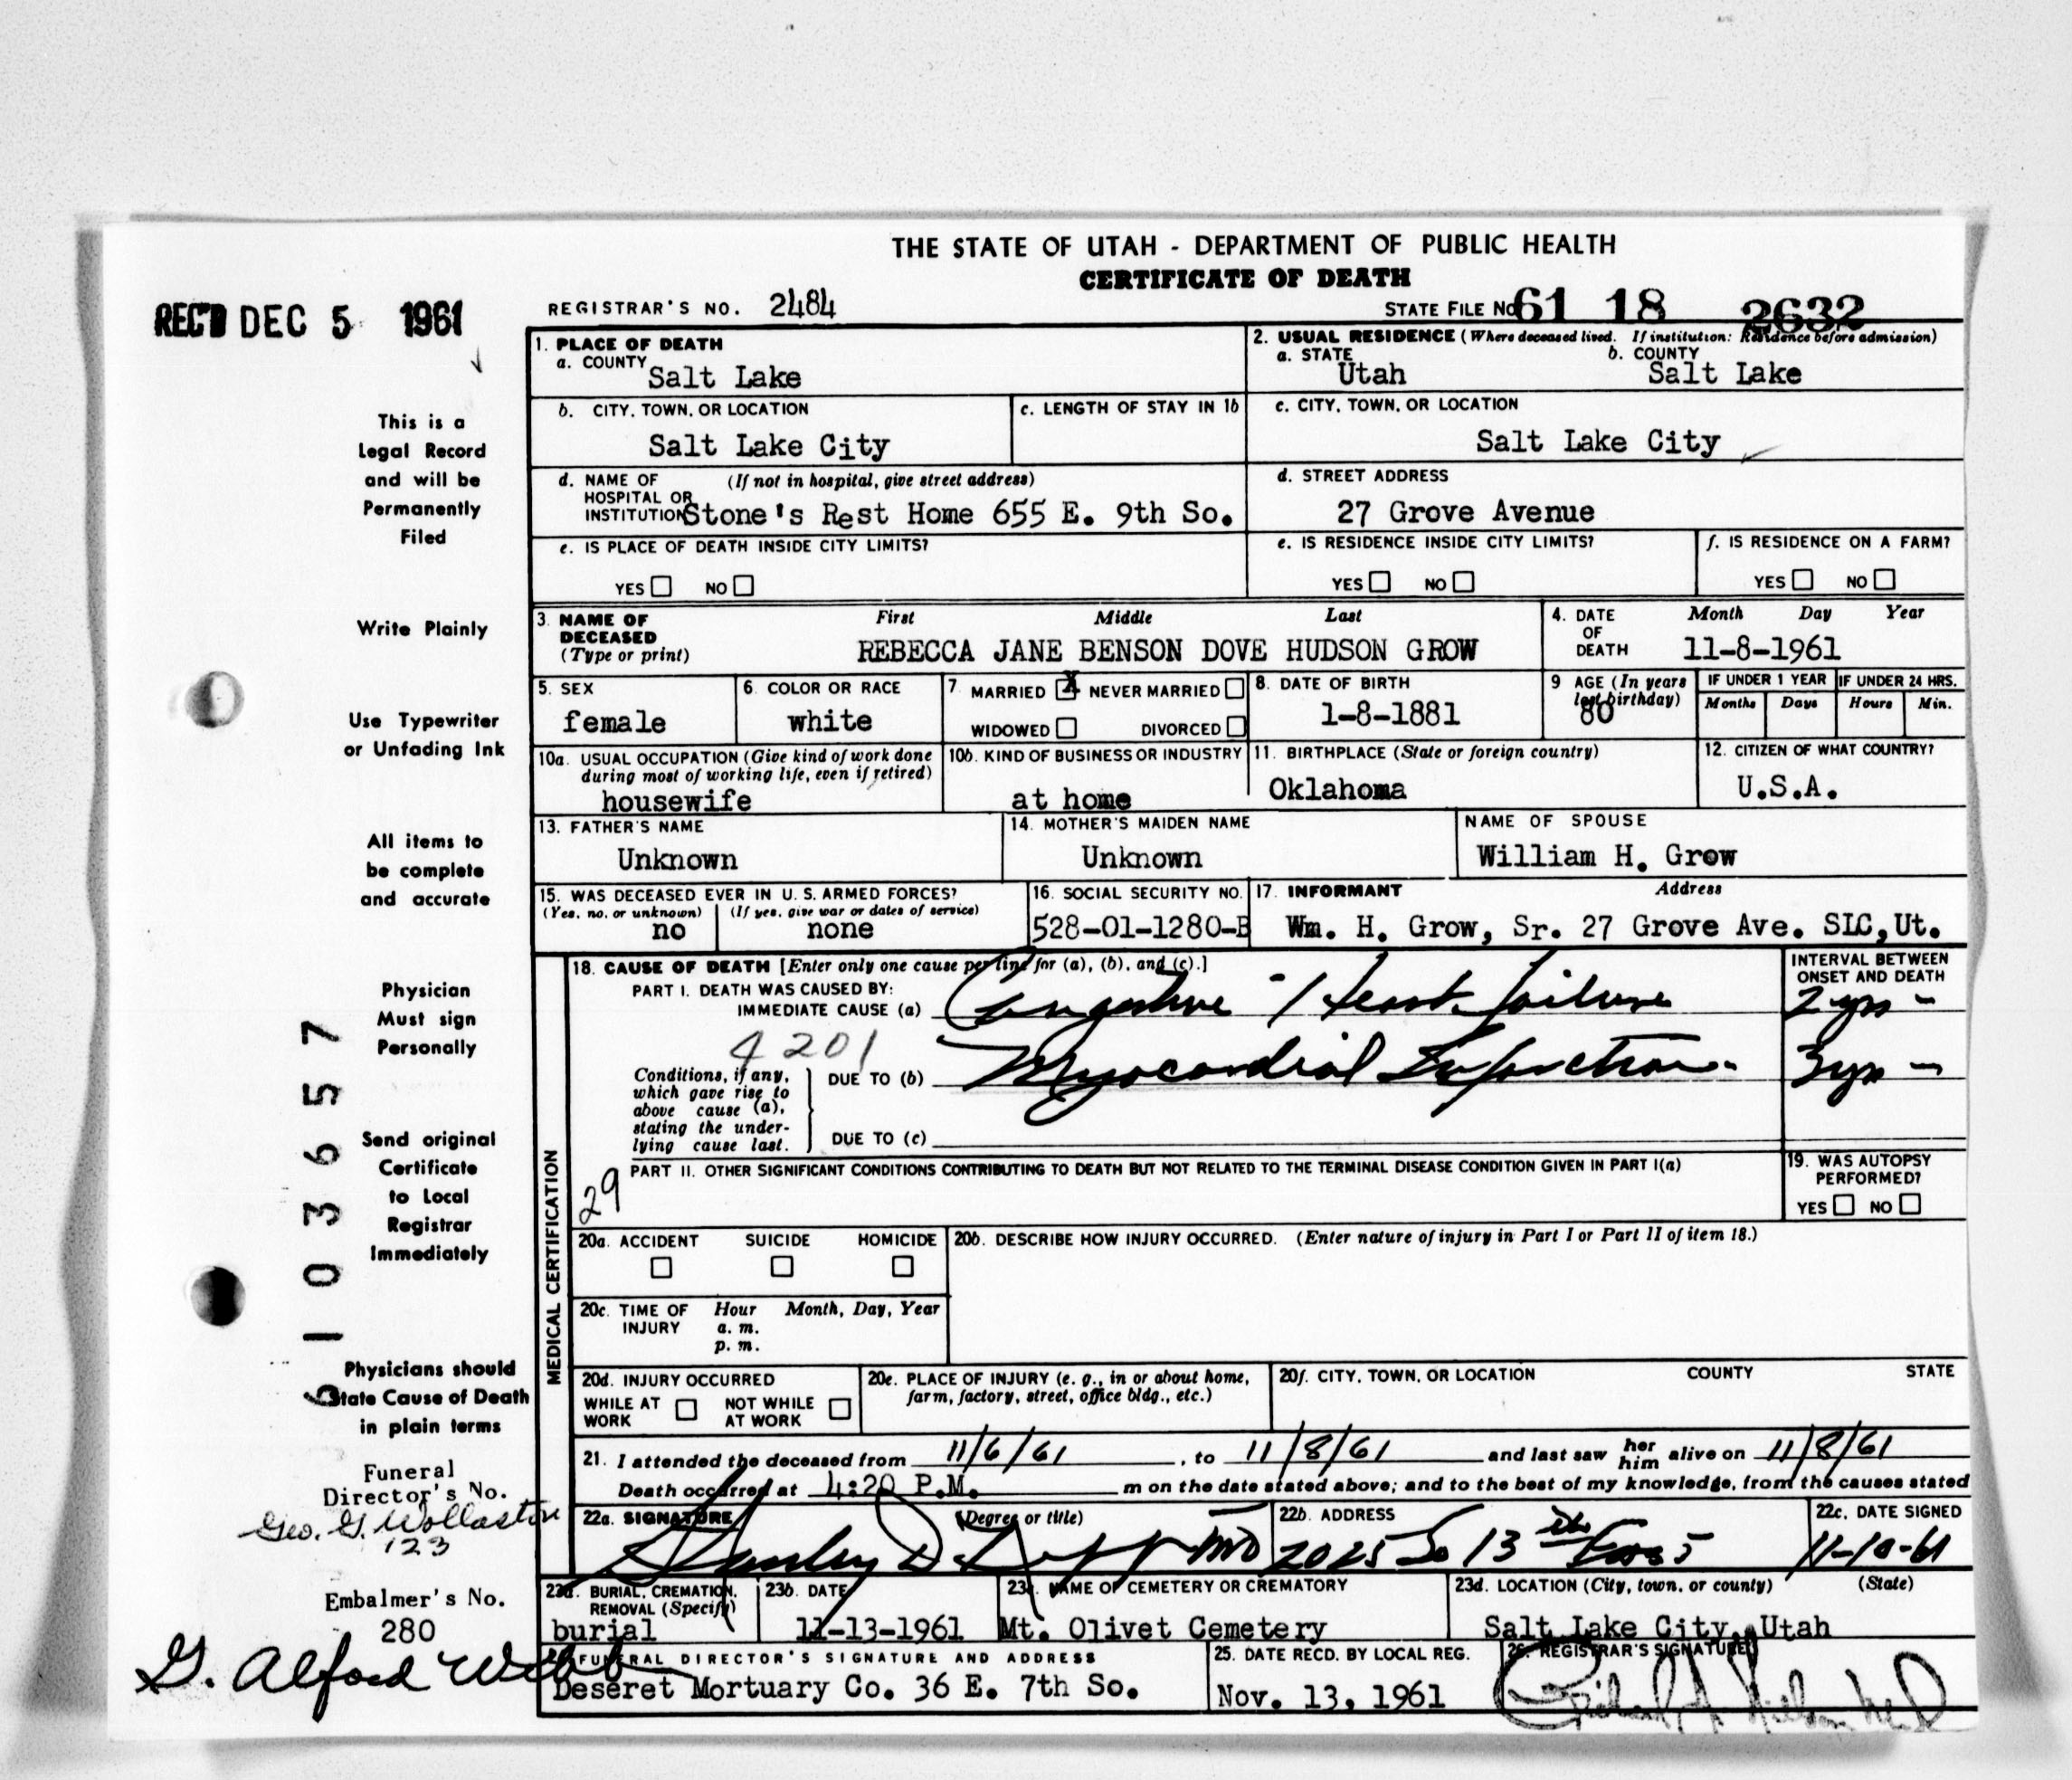 THE STATE OF UTAH - DEPARTMENT OF PUBLIC HEALTH
CERTIFICATE OF DEATH
REC'D DEC 5 1961
REGISTRAR'S NO. 2484
STATE FILE NO 61 18 2632
1. PLACE OF DEATH
a. COUNTY Salt Lake
2. USUAL RESIDENCE (Where deceased lived. If institution: Residence before admission)
a. STATE Utah b. COUNTY Salt Lake
b. CITY, TOWN, OR LOCATION Salt Lake City
c. LENGTH OF STAY IN 1b
c. CITY, TOWN, OR LOCATION Salt Lake City
d. NAME OF HOSPITAL OR INSTITUTION (If not in hospital, give street address)
Stone's Rest Home 655 E. 9th So.
d. STREET ADDRESS
27 Grove Avenue
e. IS PLACE OF DEATH INSIDE CITY LIMITS?
YES NO
e. IS RESIDENCE INSIDE CITY LIMITS?
YES NO
f. IS RESIDENCE ON A FARM?
YES NO
3. NAME OF DECEASED (Type or print)
First Middle Last
REBECCA JANE BENSON DOVE HUDSON GROW
4. DATE OF DEATH Month Day Year
11-8-1961
5. SEX
female
6. COLOR OR RACE
white
7. MARRIED X NEVER MARRIED
WIDOWED DIVORCED
8. DATE OF BIRTH
1-8-1881
9 AGE (In years last birthday)
80
IF UNDER 1 YEAR IF UNDER 24 HRS.
Months Days Hours Min.
10a. USUAL OCCUPATION (Give kind of work done during most of working life, even if retired)
housewife
10b. KIND OF BUSINESS OR INDUSTRY
at home
11. BIRTHPLACE (State or foreign country)
Oklahoma
12. CITIZEN OF WHAT COUNTRY?
U.S.A.
13. FATHER'S NAME
Unknown
14. MOTHER'S MAIDEN NAME
Unknown
NAME OF SPOUSE
William H. Grow
15. WAS DECEASED EVER IN U. S. ARMED FORCES?
(Yes, no, or unknown) (If yes, give war or dates of service)
no none
16. SOCIAL SECURITY NO.
528-01-1280-B
17. INFORMANT Address
Wm. H. Grow, Sr. 27 Grove Ave. SLC,Ut.
18. CAUSE OF DEATH [Enter only one cause per line for (a), (b), and (c).]
PART I. DEATH WAS CAUSED BY:
IMMEDIATE CAUSE (a) Congestive Heart failure
INTERVAL BETWEEN ONSET AND DEATH
2 yrs -
4201
Conditions, if any, which gave rise to above cause (a), stating the underlying cause last.
DUE TO (b) Myocardial Infarction.
3 yrs -
DUE TO (c)
PART II. OTHER SIGNIFICANT CONDITIONS CONTRIBUTING TO DEATH BUT NOT RELATED TO THE TERMINAL DISEASE CONDITION GIVEN IN PART I(a)
29
19. WAS AUTOPSY PERFORMED?
YES NO
20a. ACCIDENT SUICIDE HOMICIDE
20b. DESCRIBE HOW INJURY OCCURRED. (Enter nature of injury in Part I or Part II of item 18.)
20c. TIME OF INJURY Hour Month, Day, Year
a. m.
p. m.
20d. INJURY OCCURRED
WHILE AT WORK NOT WHILE AT WORK
20e. PLACE OF INJURY (e. g., in or about home, farm, factory, street, office bldg., etc.)
20f. CITY, TOWN, OR LOCATION COUNTY STATE
MEDICAL CERTIFICATION
21. I attended the deceased from 11/6/61, to 11/8/61 and last saw her him alive on 11/8/61
Death occurred at 4:20 P.M. m on the date stated above; and to the best of my knowledge, from the causes stated
22a. SIGNATURE (Degree or title)
Stanley D. MD
22b. ADDRESS
2025 So 13th East
22c. DATE SIGNED
11-10-61
23a. BURIAL, CREMATION, REMOVAL (Specify)
burial
23b. DATE
11-13-1961
23c. NAME OF CEMETERY OR CREMATORY
Mt. Olivet Cemetery
23d. LOCATION (City, town, or county) (State)
Salt Lake City, Utah
FUNERAL DIRECTOR'S SIGNATURE AND ADDRESS
Deseret Mortuary Co. 36 E. 7th So.
25. DATE RECD. BY LOCAL REG.
Nov. 13, 1961
26. REGISTRAR'S SIGNATURE
This is a
Legal Record
and will be
Permanently
Filed
Write Plainly
Use Typewriter
or Unfading Ink
All items to
be complete
and accurate
Physician
Must sign
Personally
Send original
Certificate
to Local
Registrar
Immediately
Physicians should
State Cause of Death
in plain terms
61036577
Funeral
Director's No.
Geo. G. Wollaston
123
Embalmer's No.
280
G. Alford Webb